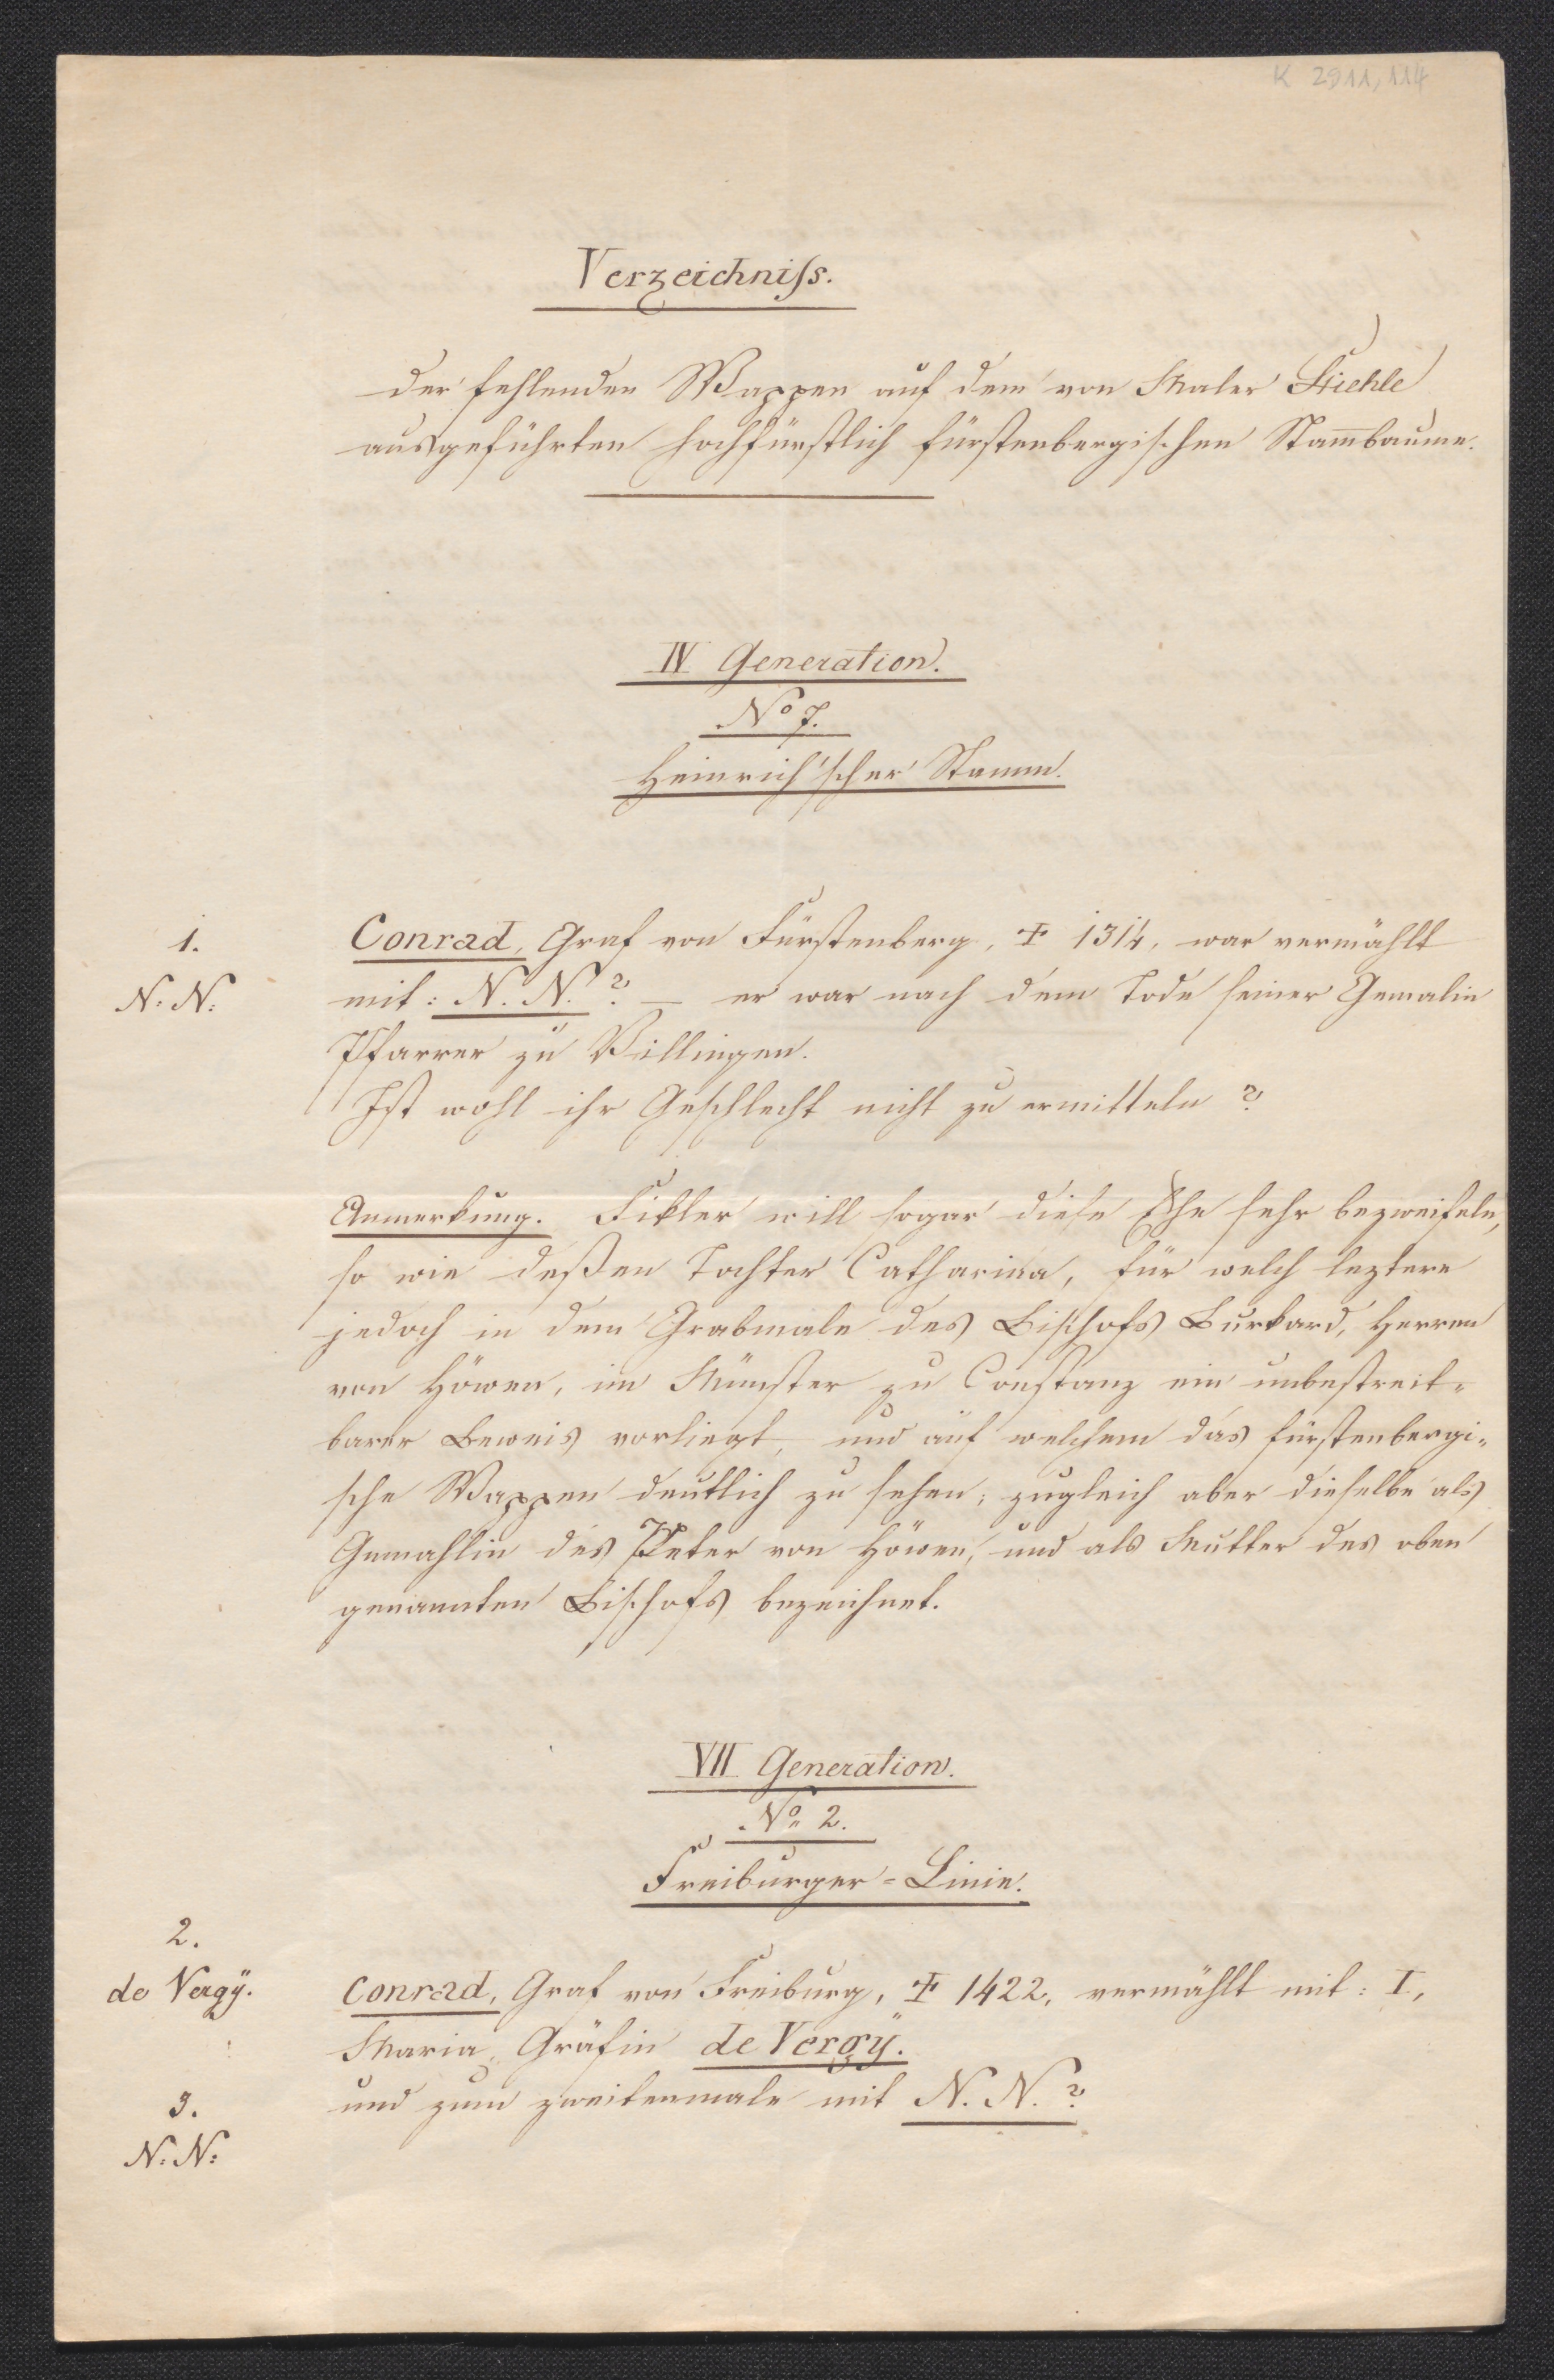 K 2911,114
Verzeichniss.
der fehlenden Wappen auf dem von Maler Stiehle
ausgeführten hochfürstlich fürstenbergischen Stam̄baume.
IV Generation.
No 7.
Heinrich'scher Stamm.
1.
N: N:
Conrad, Graf von Fürstenberg, ☩ 1314, war vermählt
mit: N. N.? — er war nach dem Tode seiner Gemalin
Pfarrer zu Villingen.
Ist wohl ihr Geschlecht nicht zu ermitteln?
Anmerkung. Fikler will sogar diese Ehe sehr bezweifeln,
so wie deßen Tochter Catharina, für welch leztere
jedoch in dem Grabmale des Bischofs Burkard, Herren
von Höwen, im Münster zu Constanz ein unbestreit=
barer Beweis vorliegt, und auf welchem das fürstenbergi=
sche Wappen deutlich zu sehen; zugleich aber dieselbe als
Gemahlin des Peter von Höwen, und als Mutter des oben
genannten Bischofs bezeichnet.
VII Generation.
No 2.
Freiburger=Linie.
2.
de Vergÿ.
Conrad, Graf von Freiburg, ☩ 1422, vermählt mit: I,
Maria, Gräfin de Vergÿ.
und zum zweitenmale mit N. N.?
3.
N: N: